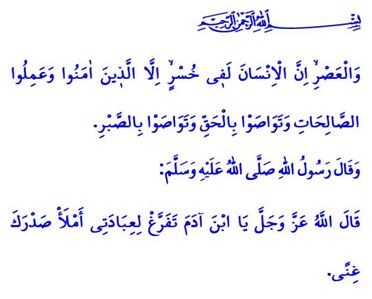 بِسْمِ اللّٰهِ الرَّحْمٰنِ الرَّحِيمِ
وَالْعَصْرِۙ اِنَّ الْاِنْسَانَ لَف۪ى خُسْرٍۙ اِلَّا الَّذ۪ينَ اٰمَنُوا وَعَمِلُوا
الصَّالِحَاتِ وَتَوَاصَوْا بِالْحَقِّ وَتَوَاصَوْا بِالصَّبْرِ.
وَقَالَ رَسُولُ اللّٰهِ صَلَّى اللّٰهُ عَلَيْهِ وَسَلَّمَ:
قَالَ اللَّهُ عَزَّ وَجَلَّ يَا ابْنَ آدَمَ تَفَرَّغْ لِعِبَادَتِى أَمْلَأْ صَدْرَكَ
غِنًى.